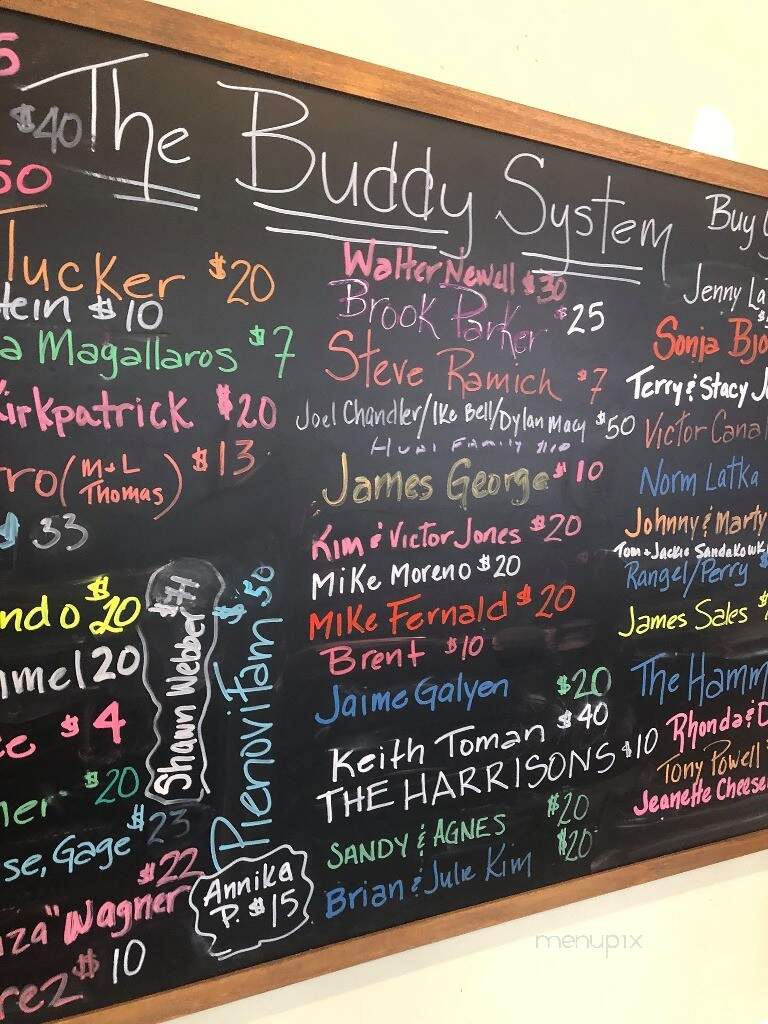 The Buddy System
5
$40
50
Tucker $20
tein $10
a Magallaros $7
Kirkpatrick $20
rro (M+L Thomas) $13
$33
ndo $20
mmel 20
ce $4
ner $20
se, Gage $23
$22
nza" Wagner
rez $10
Shawn Webber $71
PienoviFam $50
Annika
P. $15
Walter Newell $30
Brook Parker $25
Steve Ramich $7
Joel Chandler/Ike Bell/Dylan Macy $50
Family $10
James George $10
Kim & Victor Jones $20
Mike Moreno $20
Mike Fernald $20
Brent $10
Jaime Galyen $20
Keith Toman $40
THE HARRISONS $10
SANDY & AGNES $20
Brian & Julie Kim $20
Buy
Jenny La
Sonja Bjo
Terry & Stacy J
Victor Cana
Norm Latka
Johnny & Marty
Tom + Jackie Sandakowk
Rangel/Perry $
James Sales $
The Hamm
Rhonda & D
Tony Powell
Jeanette Cheese
menupix